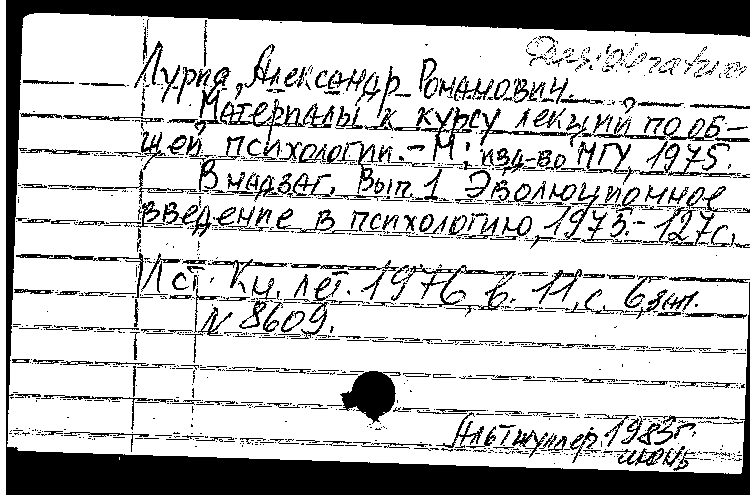 Desiderata
Лурия, Александр Романович.
Материалы к курсу лекций по об-
щей психологии. - М: изд-во МГУ, 1975.
В надзаг. Вып. 1 Эволюционное
введение в психологию, 1975. - 127 с.
Ист. Кн. лет. 1976, в. 11, с. 6, зап.
N 8609.
Альтшуллер 1983г.
июнь